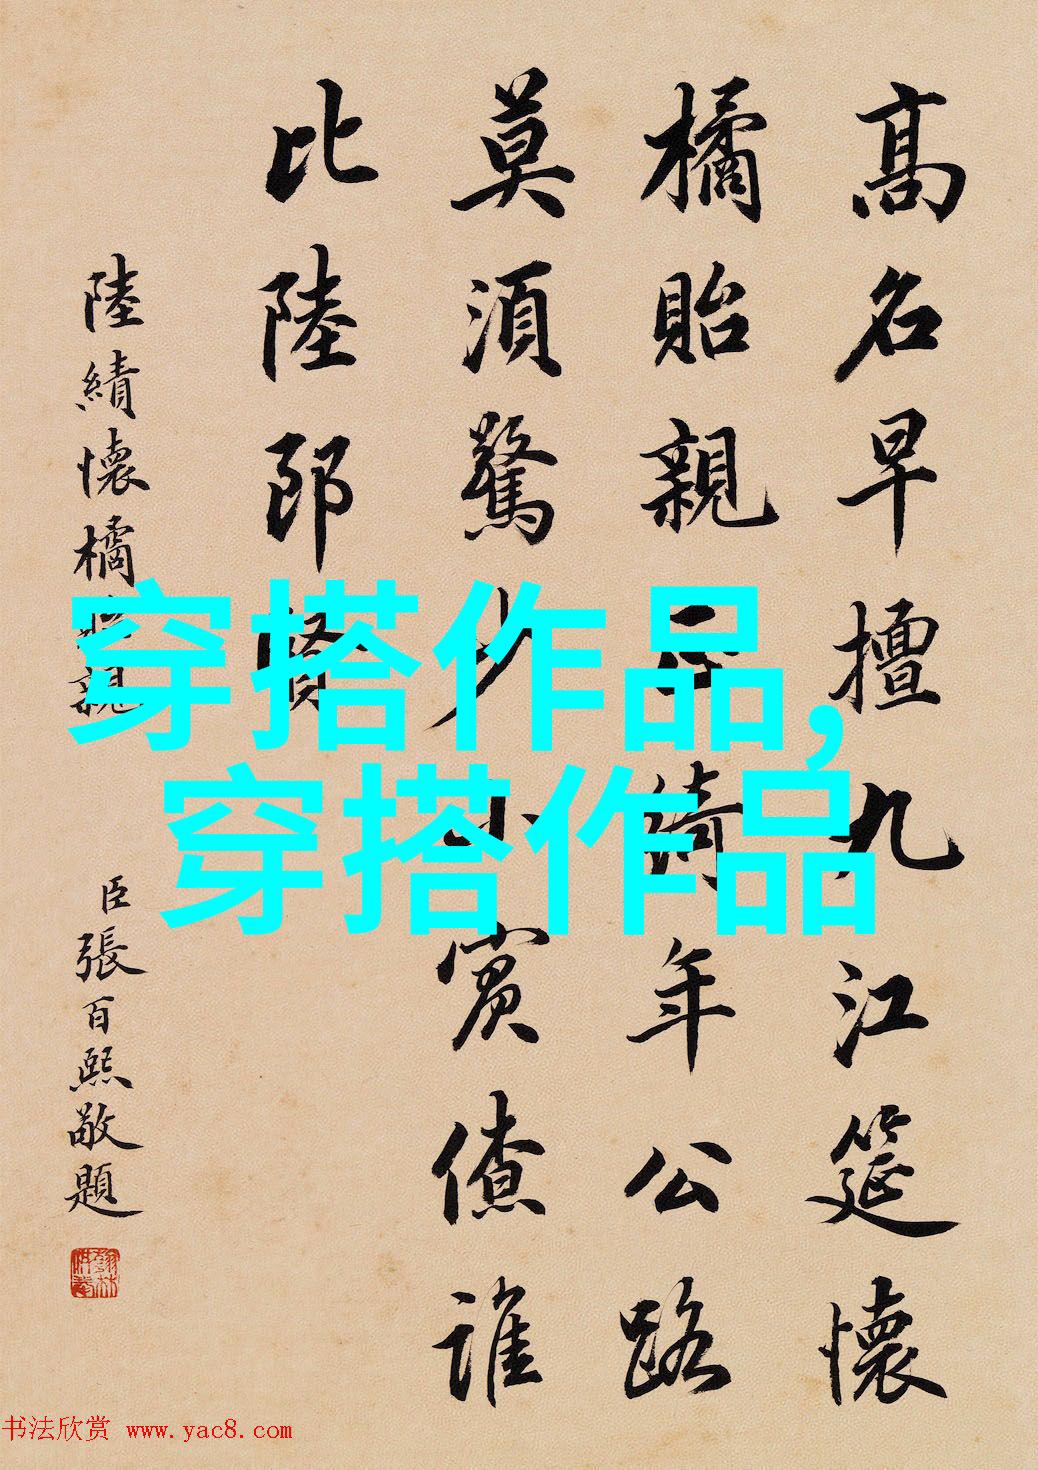 高名早擅九江筵懷
橘貽親正綺年公路
莫須驚少小賓僚誰
比陸郎賢
陸績懷橘遺親
臣張百熙敬題
穿搭作品,
穿搭作品
书法欣赏 www.yac8.com